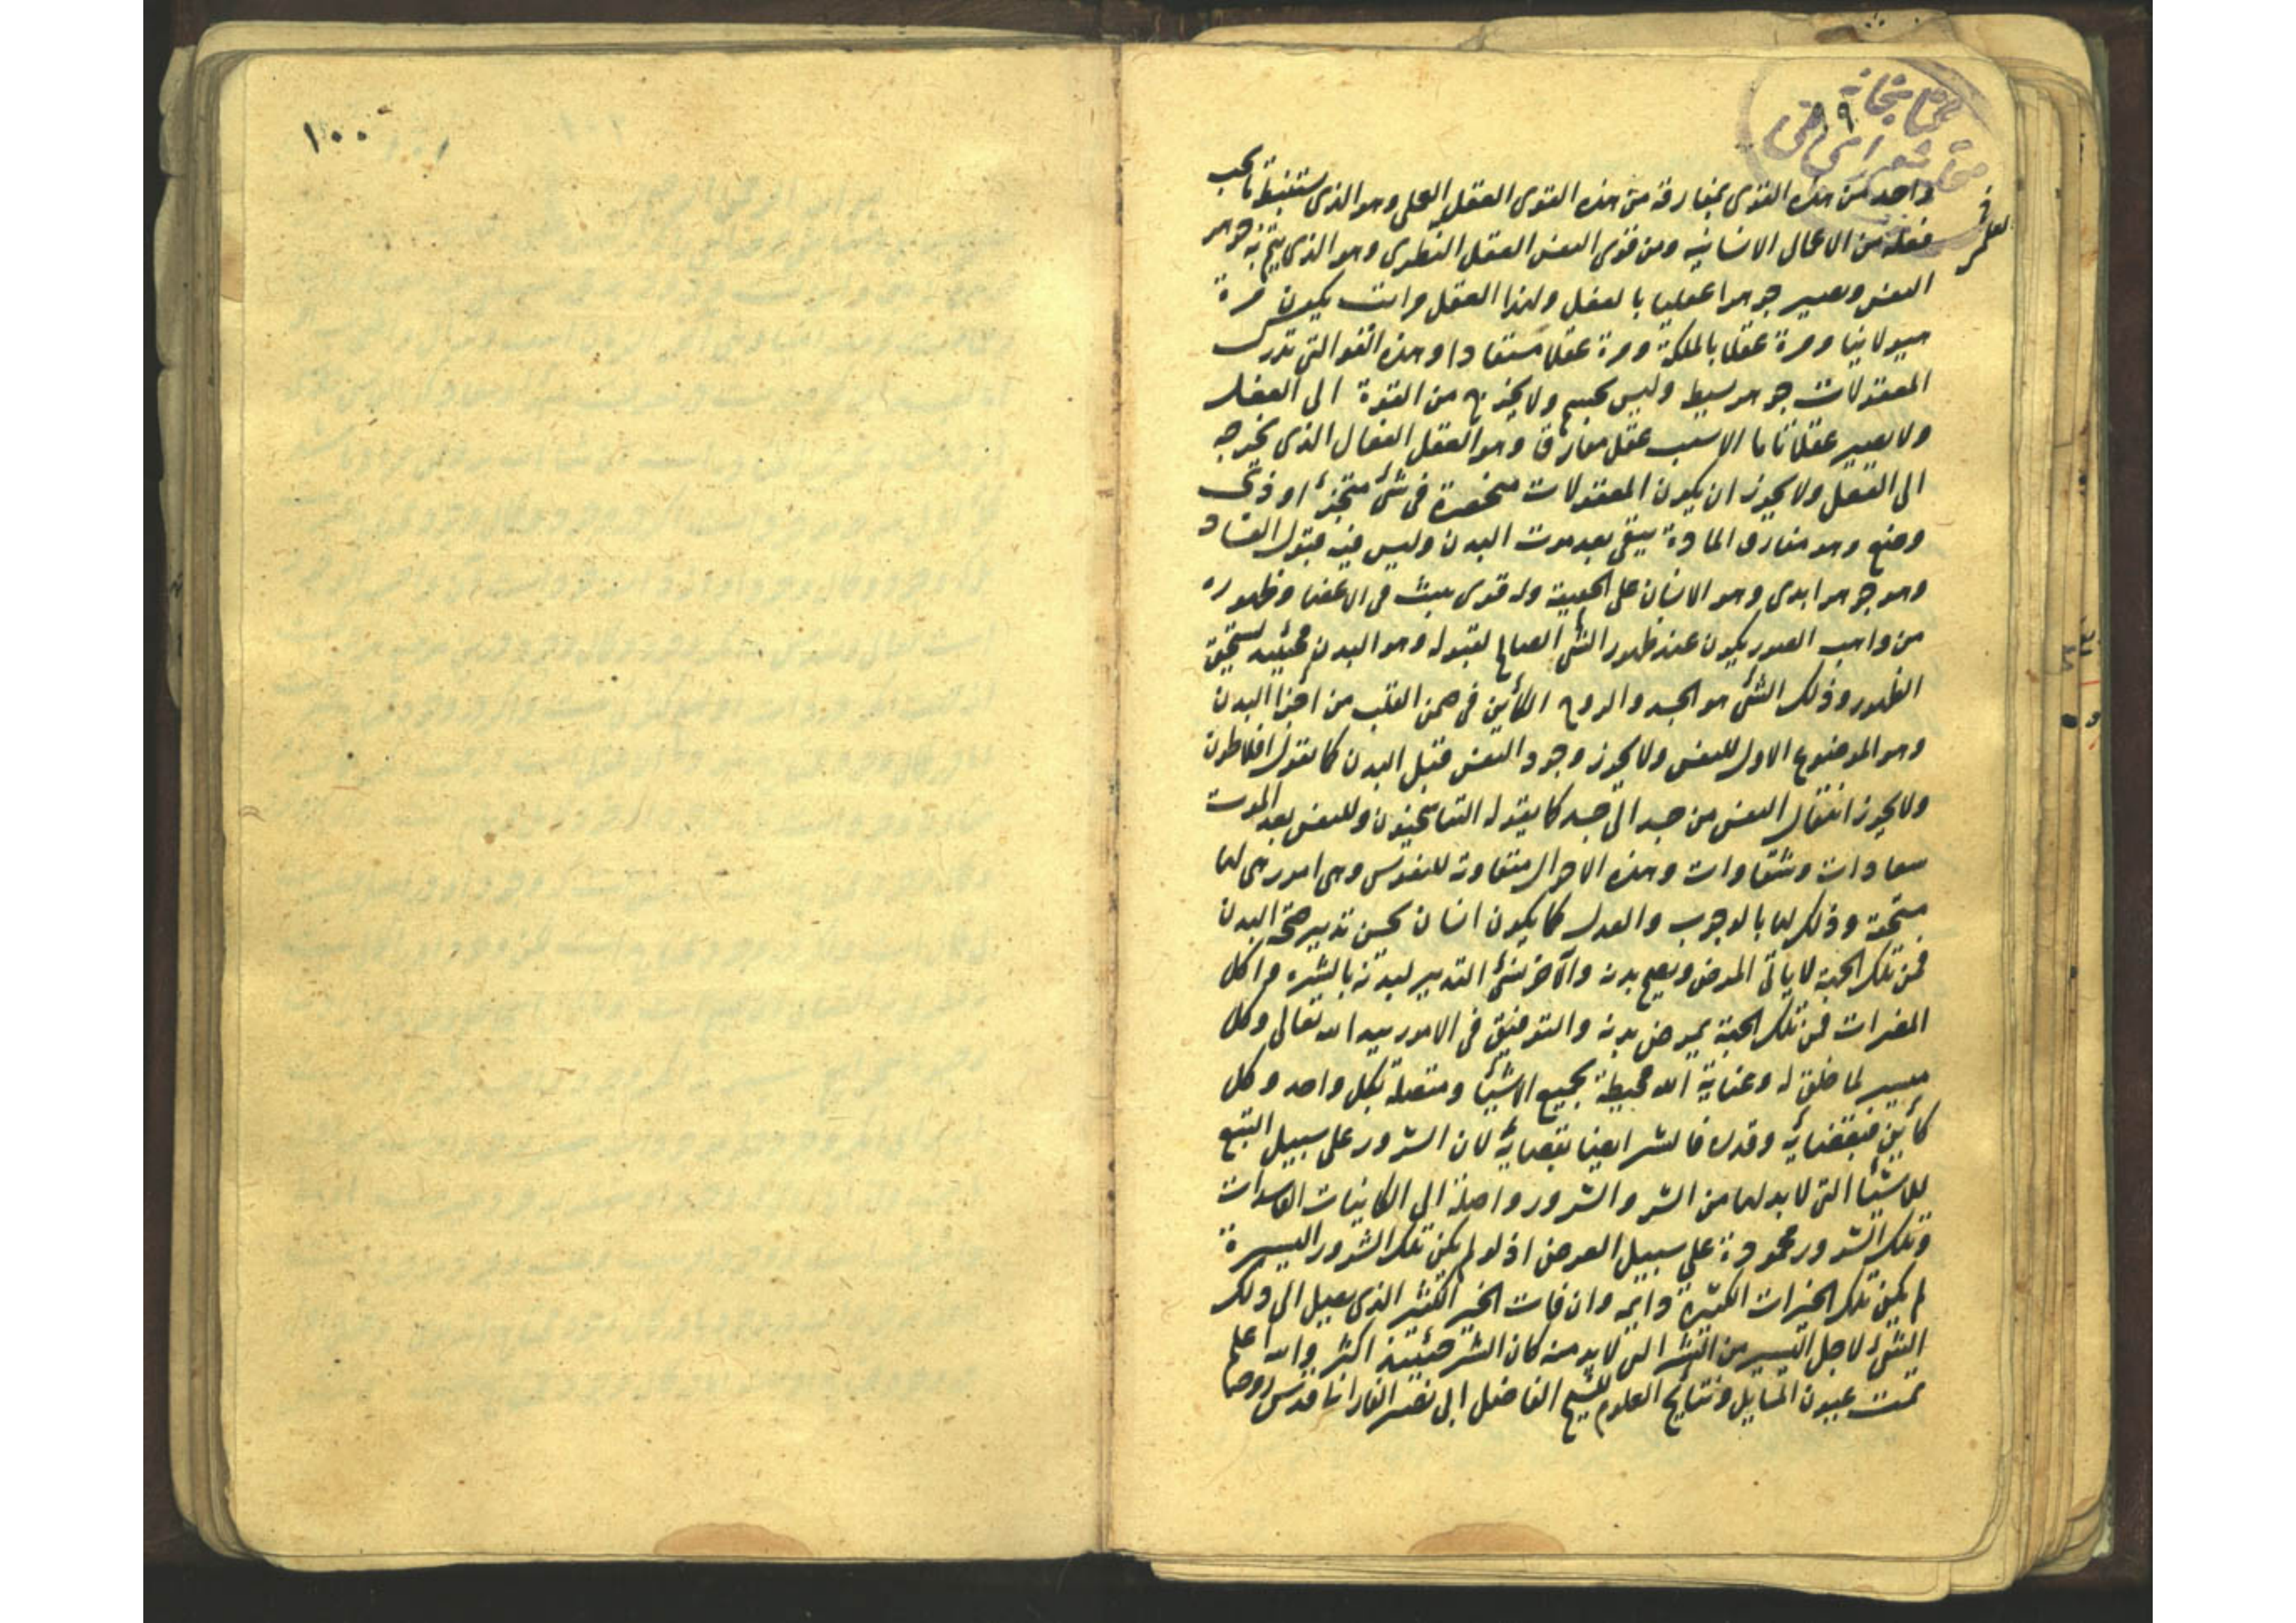 واحد من هذه القوى بمفارقة من هذه القوى العقل العملى وهو الذى يستنبط ما يجب
فعله من الاعمال الانسانيه ومن قوى النفس العقل النظرى وهو الذى يتم به جوهر
النفس ويصير جوهرا عقليا بالفعل ولهذا العقل مراتب يكون مرة
هيولانيا ومرة عقلا بالملكة ومرة عقلا مستفادا وهذه القوالتى تدرك
المعقولات جوهر بسيط وليس بجسم ولا يخرج من القوة الى الفعل
ولا يصير عقلا تاما الا بسبب عقل مفارق وهو العقل الفعال الذى يخرجه
الى الفعل ولا يجوز ان يكون المعقولات منحصرة فى شئ متجزئ او ذى
وضع وهو مفارق المادة يبقى بعد موت البدن وليس فيه قبول الفساد
وهو جوهر ابدى وهو الانسان على الحقيقة وله قوى ينبث فى الاعضا وظهوره
من واهب الصور يكون عند ظهور الشئ الصالح لقبوله وهو البدن فحينئذ يستحق
الظهور وذلك الشئ هو الجسد والروح الكائن فى ضمن القلب من اجزا البدن
وهو الموضوع الاول للنفس ولا يجوز وجود النفس قبل البدن كما يقول افلاطون
ولا يجوز انتقال النفس من جسد الى جسد كما يقوله التناسخيون وللنفس بعد الموت
سعادات وشقاوات وهذه الاحوال متفاوتة للنفوس وهى امور هى لها
مستحقة وذلك لها بالوجوب والعدل كما يكون انسان يحسن تدبير صحة البدن
فمن تلك الجهة لا ياتى المرض ويصح بدنه والآخر يسئ التدبير لبدنه بالشره واكل
المضرات فمن تلك الجهة يمرض بدنه والتوفيق فى الامور بيد الله تعالى وكل
ميسر لما خلق له وعناية الله محيطة بجميع الاشيا ومتصلة بكل واحد وكل
كائن فبقضائه وقدره فالشر ايضا بقضائه لان الشرور على سبيل التبع
للاشيا التى لا بد لها من الشر والشرور واصلة الى الكاينات الفاسدات
وتلك الشرور محمودة على سبيل العرض اذ لو لم يكن تلك الشرور اليسيرة
لم يكن تلك الخيرات الكثيرة دايمه وان فات الخير الكثير الذى يصل الى ذلك
الشئ لاجل اليسير من الشر الذى لا بد منه كان الشر حينئذ اكثر والله اعلم
تمت عيون المسايل ونتايج العلوم للشيخ الفاضل ابى نصر الفارابى قدس روحه
١٠٠